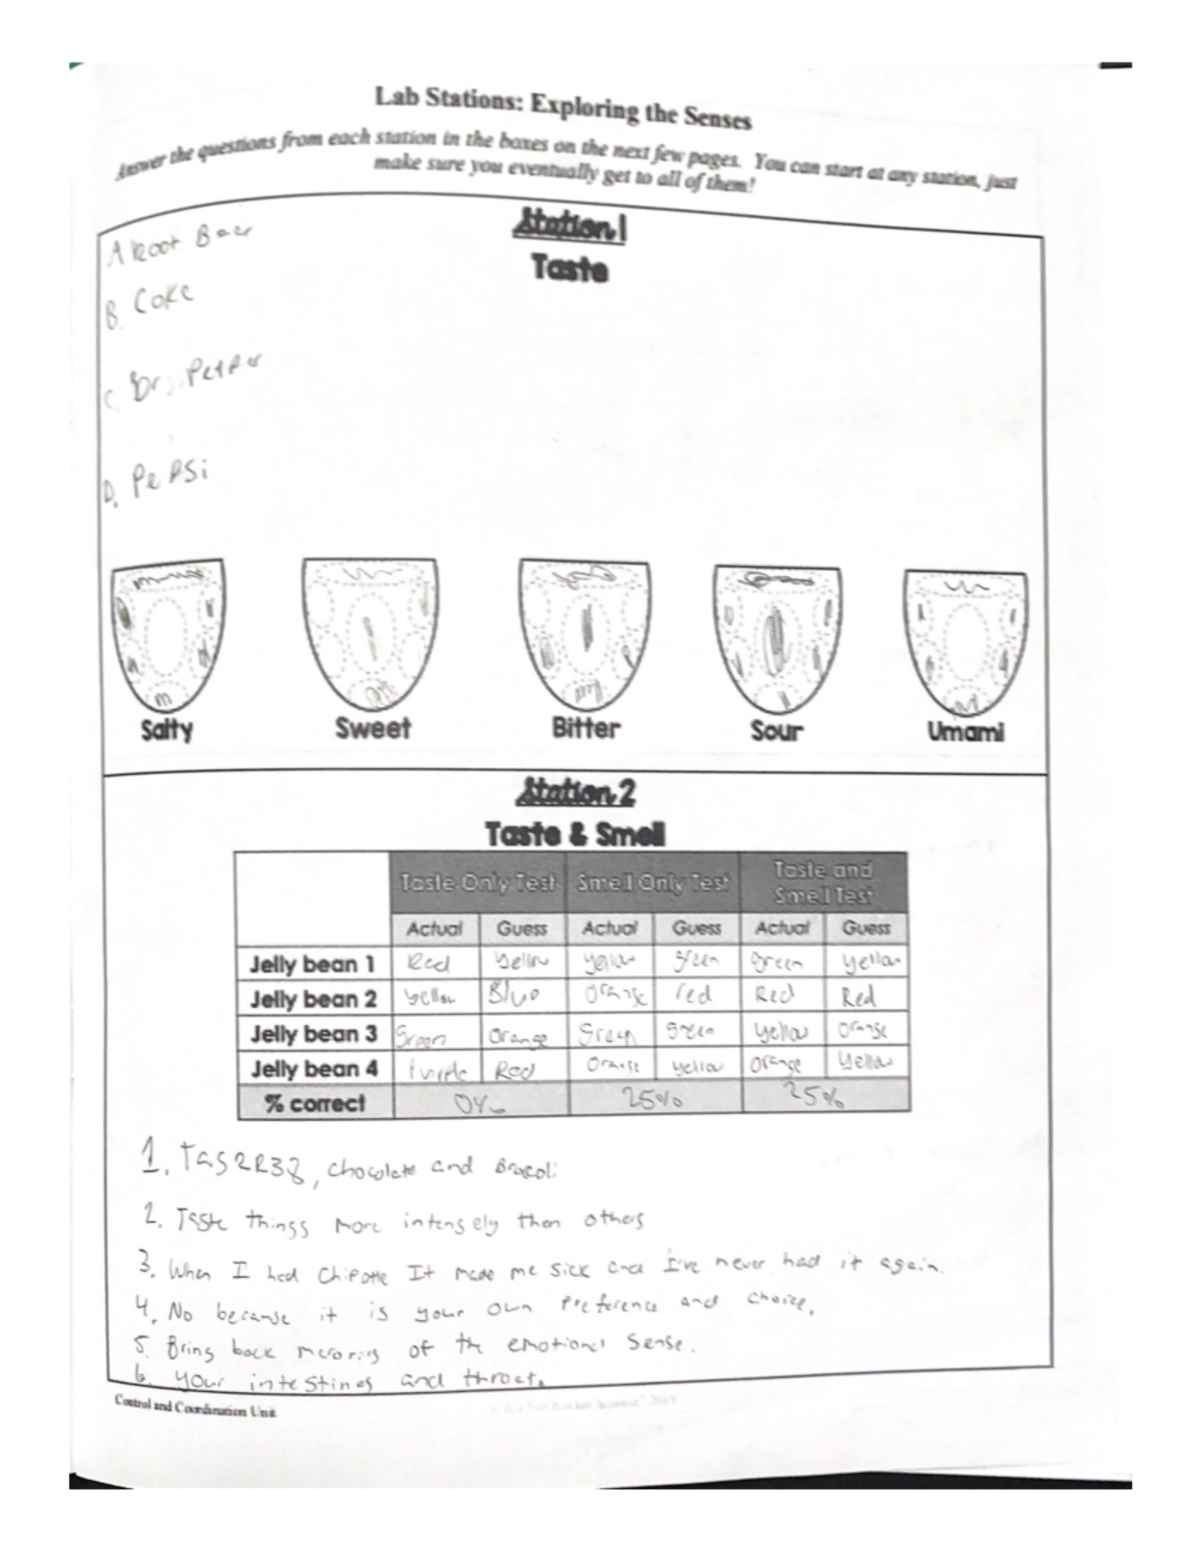 Lab Stations: Exploring the Senses
Answer the questions from each station in the boxes on the next few pages. You can start at any station, just
make sure you eventually get to all of them!
Station 1
Taste
A Root Beer
B. Coke
C. Dr. Pepper
D. Pepsi
Salty Sweet Bitter Sour Umami
Station 2
Taste & Smell
Taste Only Test Smell Only Test Taste and
Smell Test
Actual Guess Actual Guess Actual Guess
Jelly bean 1 Red Yellow yellow green green yellow
Jelly bean 2 yellow Blue orange red Red Red
Jelly bean 3 Green orange Green green yellow orange
Jelly bean 4 Purple Red orange yellow orange yellow
% correct 0% 25% 25%
1. Tas2R38, chocolate and Brocoli
2. Taste things more intensely then others
3. When I had Chipotle It made me sick and I've never had it again.
4. No because it is your own preference and choice.
5. Bring back memories of the emotional sense.
6. your intestines and throat.
Control and Coordination Unit